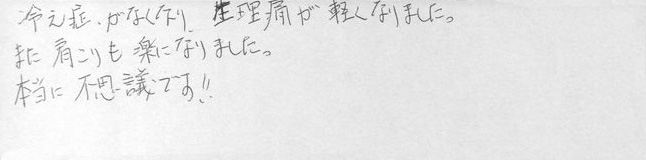 冷え症がなくなり、生理痛が軽くなりました。
また肩こりも楽になりました。
本当に不思議です!!